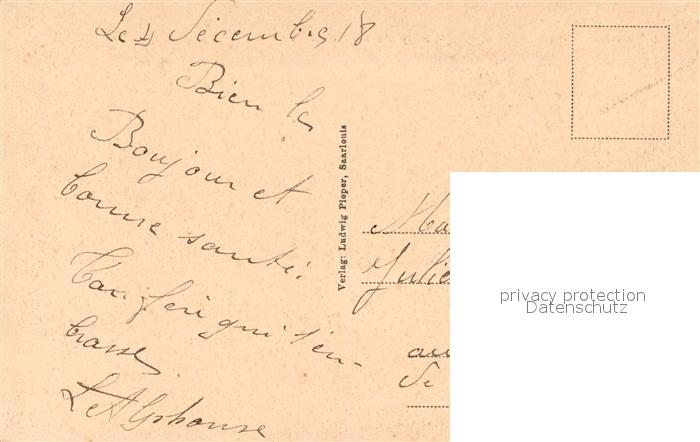 Le 4 Décembre 18
Bien le
Bonjour et
bonne santé.
Ton qui t'em-
brasse
Alphonse
Verlag: Ludwig Pieper, Saarlouis
privacy protection
Datenschutz